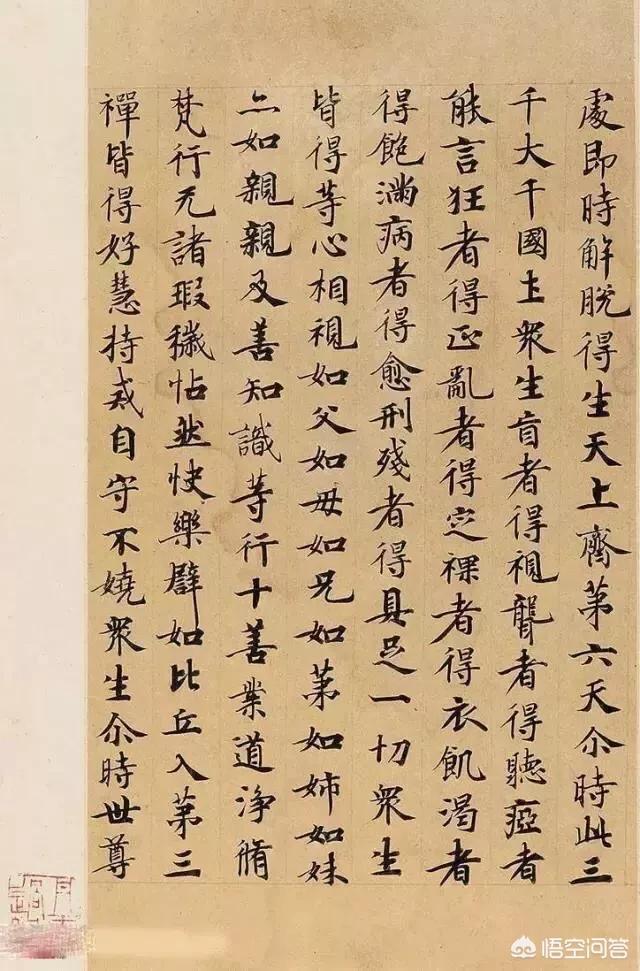 處即時解脫得生天上齊第六天尒時此三
千大千國土衆生盲者得視聾者得聽瘂者
能言狂者得正亂者得定裸者得衣飢渴者
得飽滿病者得愈刑殘者得具足一切衆生
皆得等心相視如父如母如兄如苐如姉如妹
亦如親親及善知識等行十善業道淨脩
梵行无諸瑕穢怗然快樂譬如比丘入第三
禪皆得好慧持戒自守不嬈衆生尒時世尊
悟空问答